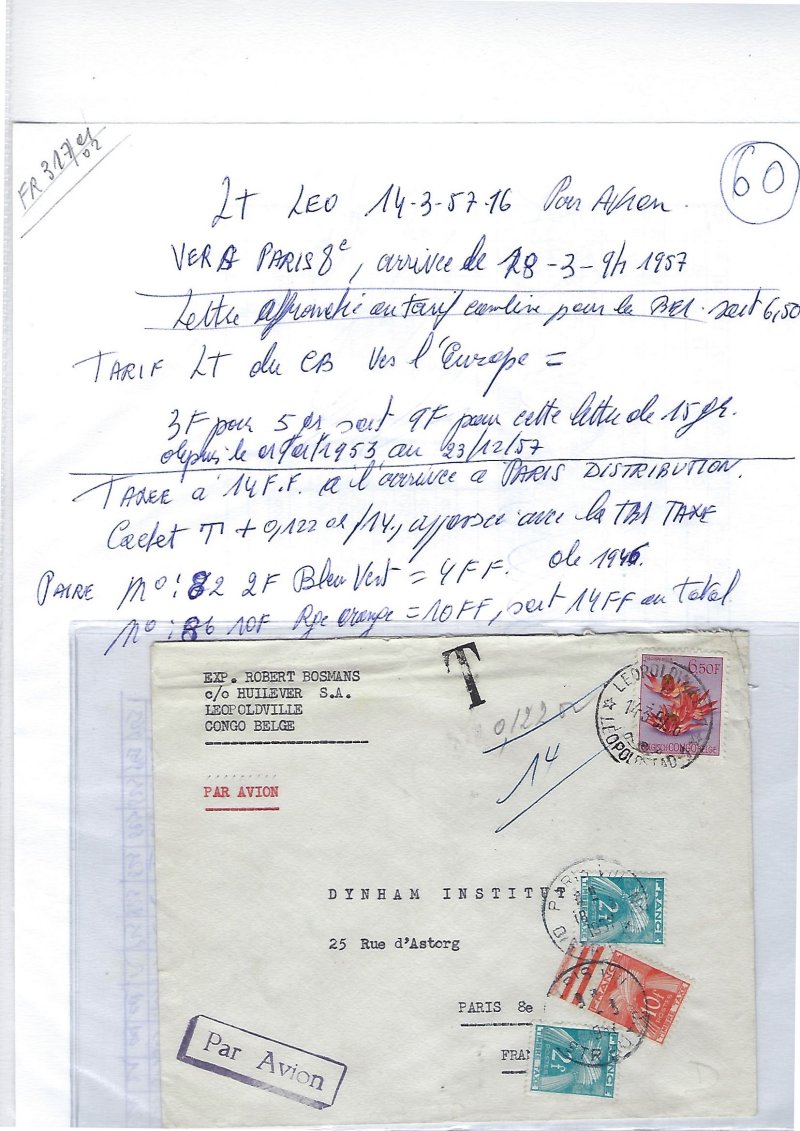 FR 317 01/02
60
Lt LEO 14-3-57-16 Par Avion.
VERS PARIS 8e, arrivée le 18-3-9h 1957
Lettre affranchie au tarif combiné pour la BEL. soit 6,50
TARIF Lt du CB Vers l'Europe =
3F pour 5 gr soit 9F pour cette lettre de 15 gr.
depuis le 01/01/1953 au 23/12/57
TAXEE à 14 F.F. à l'arrivée à PARIS DISTRIBUTION.
Cachet T + 0,122 or/14, apposée avec la TBS TAXE
de 1946.
PAIRE No: 82 2F Bleu Vert = 4FF.
No: 86 10F Rge orange = 10FF, soit 14FF au Total
EXP. ROBERT BOSMANS
c/o HUILEVER S.A.
LEOPOLDVILLE
CONGO BELGE
T
0,122 or
14
6,50F
BELGISCH CONGO BELGE
LEOPOLDVILLE
LEOPOLDSTAD
PAR AVION
DYNHAM INSTITUT
25 Rue d'Astorg
PARIS 8e
FRAN
Par Avion
FRANCE
2F
FRANCE
10F
FRANCE
2F
TIMBRE TAXE
PARIS